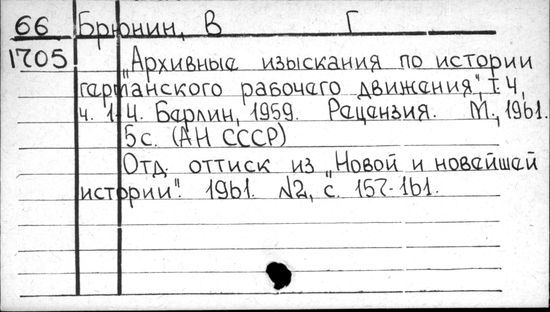 66 Брюнин, В Г
1705 „Архивные изыскания по истории
германского рабочего движения", I-4,
ч. 1-4. Берлин, 1959. Рецензия. М., 1961.
5с. (АН СССР)
Отд. оттиск из „Новой и новейшей
истории". 1961. N2, с. 157-161.